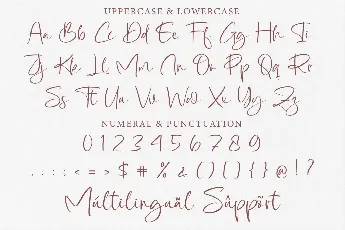 UPPERCASE & LOWERCASE
Aa Bb Cc Dd Ee Ff Gg Hh Ii
Jj Kk Ll Mm Nn Oo Pp Qq Rr
Ss Tt Uu Vv Ww Xx Yy Zz
NUMERAL & PUNCTUATION
0 1 2 3 4 5 6 7 8 9
. , : ; < = > $ # % & ( ) [ ] { } @ ! ?
Múltilinguäl Sûppört